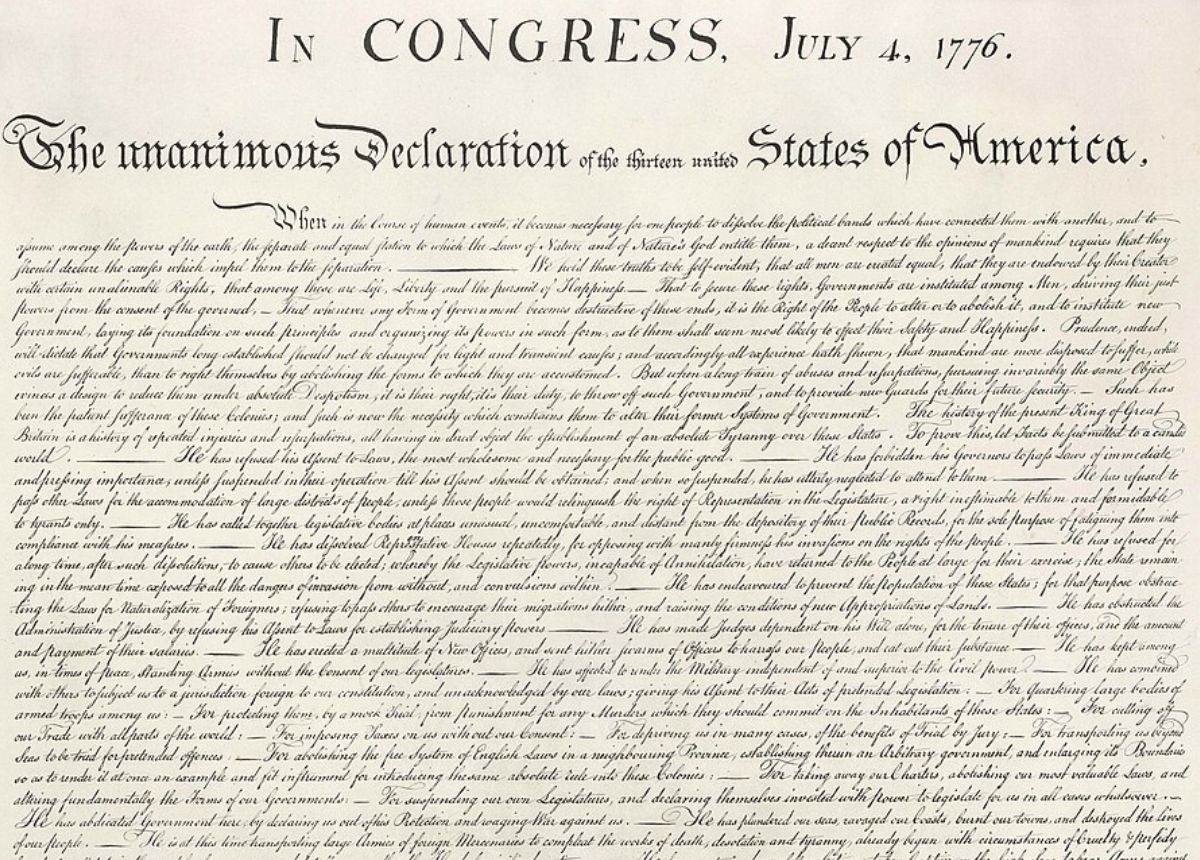 In CONGRESS, July 4, 1776.
The unanimous Declaration of the thirteen united States of America,
When in the Course of human events, it becomes necessary for one people to dissolve the political bands which have connected them with another, and to
assume among the powers of the earth, the separate and equal station to which the Laws of Nature and of Nature's God entitle them, a decent respect to the opinions of mankind requires that they
should declare the causes which impel them to the separation. ——— We hold these truths to be self-evident, that all men are created equal, that they are endowed by their Creator
with certain unalienable Rights, that among these are Life, Liberty and the pursuit of Happiness.— That to secure these rights, Governments are instituted among Men, deriving their just
powers from the consent of the governed, — That whenever any Form of Government becomes destructive of these ends, it is the Right of the People to alter or to abolish it, and to institute new
Government, laying its foundation on such principles and organizing its powers in such form, as to them shall seem most likely to effect their Safety and Happiness. Prudence, indeed,
will dictate that Governments long established should not be changed for light and transient causes; and accordingly all experience hath shewn, that mankind are more disposed to suffer, while
evils are sufferable, than to right themselves by abolishing the forms to which they are accustomed. But when a long train of abuses and usurpations, pursuing invariably the same Object
evinces a design to reduce them under absolute Despotism, it is their right, it is their duty, to throw off such Government, and to provide new Guards for their future security. — Such has
been the patient sufferance of these Colonies; and such is now the necessity which constrains them to alter their former Systems of Government. The history of the present King of Great
Britain is a history of repeated injuries and usurpations, all having in direct object the establishment of an absolute Tyranny over these States. To prove this, let Facts be submitted to a candid
world. ——— He has refused his Assent to Laws, the most wholesome and necessary for the public good. ——— He has forbidden his Governors to pass Laws of immediate
and pressing importance, unless suspended in their operation till his Assent should be obtained; and when so suspended, he has utterly neglected to attend to them. ——— He has refused to
pass other Laws for the accommodation of large districts of people, unless those people would relinquish the right of Representation in the Legislature, a right inestimable to them and formidable
to tyrants only. ——— He has called together legislative bodies at places unusual, uncomfortable, and distant from the depository of their public Records, for the sole purpose of fatiguing them into
compliance with his measures. ——— He has dissolved Representative Houses repeatedly, for opposing with manly firmness his invasions on the rights of the people. ——— He has refused for
a long time, after such dissolutions, to cause others to be elected; whereby the Legislative powers, incapable of Annihilation, have returned to the People at large for their exercise; the State remain
ing in the mean time exposed to all the dangers of invasion from without, and convulsions within. ——— He has endeavoured to prevent the population of these States; for that purpose obstruc
ting the Laws for Naturalization of Foreigners; refusing to pass others to encourage their migrations hither, and raising the conditions of new Appropriations of Lands. ——— He has obstructed the
Administration of Justice, by refusing his Assent to Laws for establishing Judiciary powers. ——— He has made Judges dependent on his Will alone, for the tenure of their offices, and the amount
and payment of their salaries. ——— He has erected a multitude of New Offices, and sent hither swarms of Officers to harrass our people, and eat out their substance. ——— He has kept among
us, in times of peace, Standing Armies without the Consent of our legislatures. ——— He has affected to render the Military independent of and superior to the Civil power. ——— He has combined
with others to subject us to a jurisdiction foreign to our constitution, and unacknowledged by our laws; giving his Assent to their Acts of pretended Legislation: — For Quartering large bodies of
armed troops among us: — For protecting them, by a mock Trial, from punishment for any Murders which they should commit on the Inhabitants of these States: — For cutting off
our Trade with all parts of the world: — For imposing Taxes on us without our Consent: — For depriving us in many cases, of the benefits of Trial by Jury: — For transporting us beyond
Seas to be tried for pretended offences: — For abolishing the free System of English Laws in a neighbouring Province, establishing therein an Arbitrary government, and enlarging its Boundaries
so as to render it at once an example and fit instrument for introducing the same absolute rule into these Colonies: — For taking away our Charters, abolishing our most valuable Laws, and
altering fundamentally the Forms of our Governments: — For suspending our own Legislatures, and declaring themselves invested with power to legislate for us in all cases whatsoever. —
He has abdicated Government here, by declaring us out of his Protection and waging War against us. ——— He has plundered our seas, ravaged our Coasts, burnt our towns, and destroyed the Lives
of our people. ——— He is at this time transporting large Armies of foreign Mercenaries to compleat the works of death, desolation and tyranny, already begun with circumstances of Cruelty & perfidy